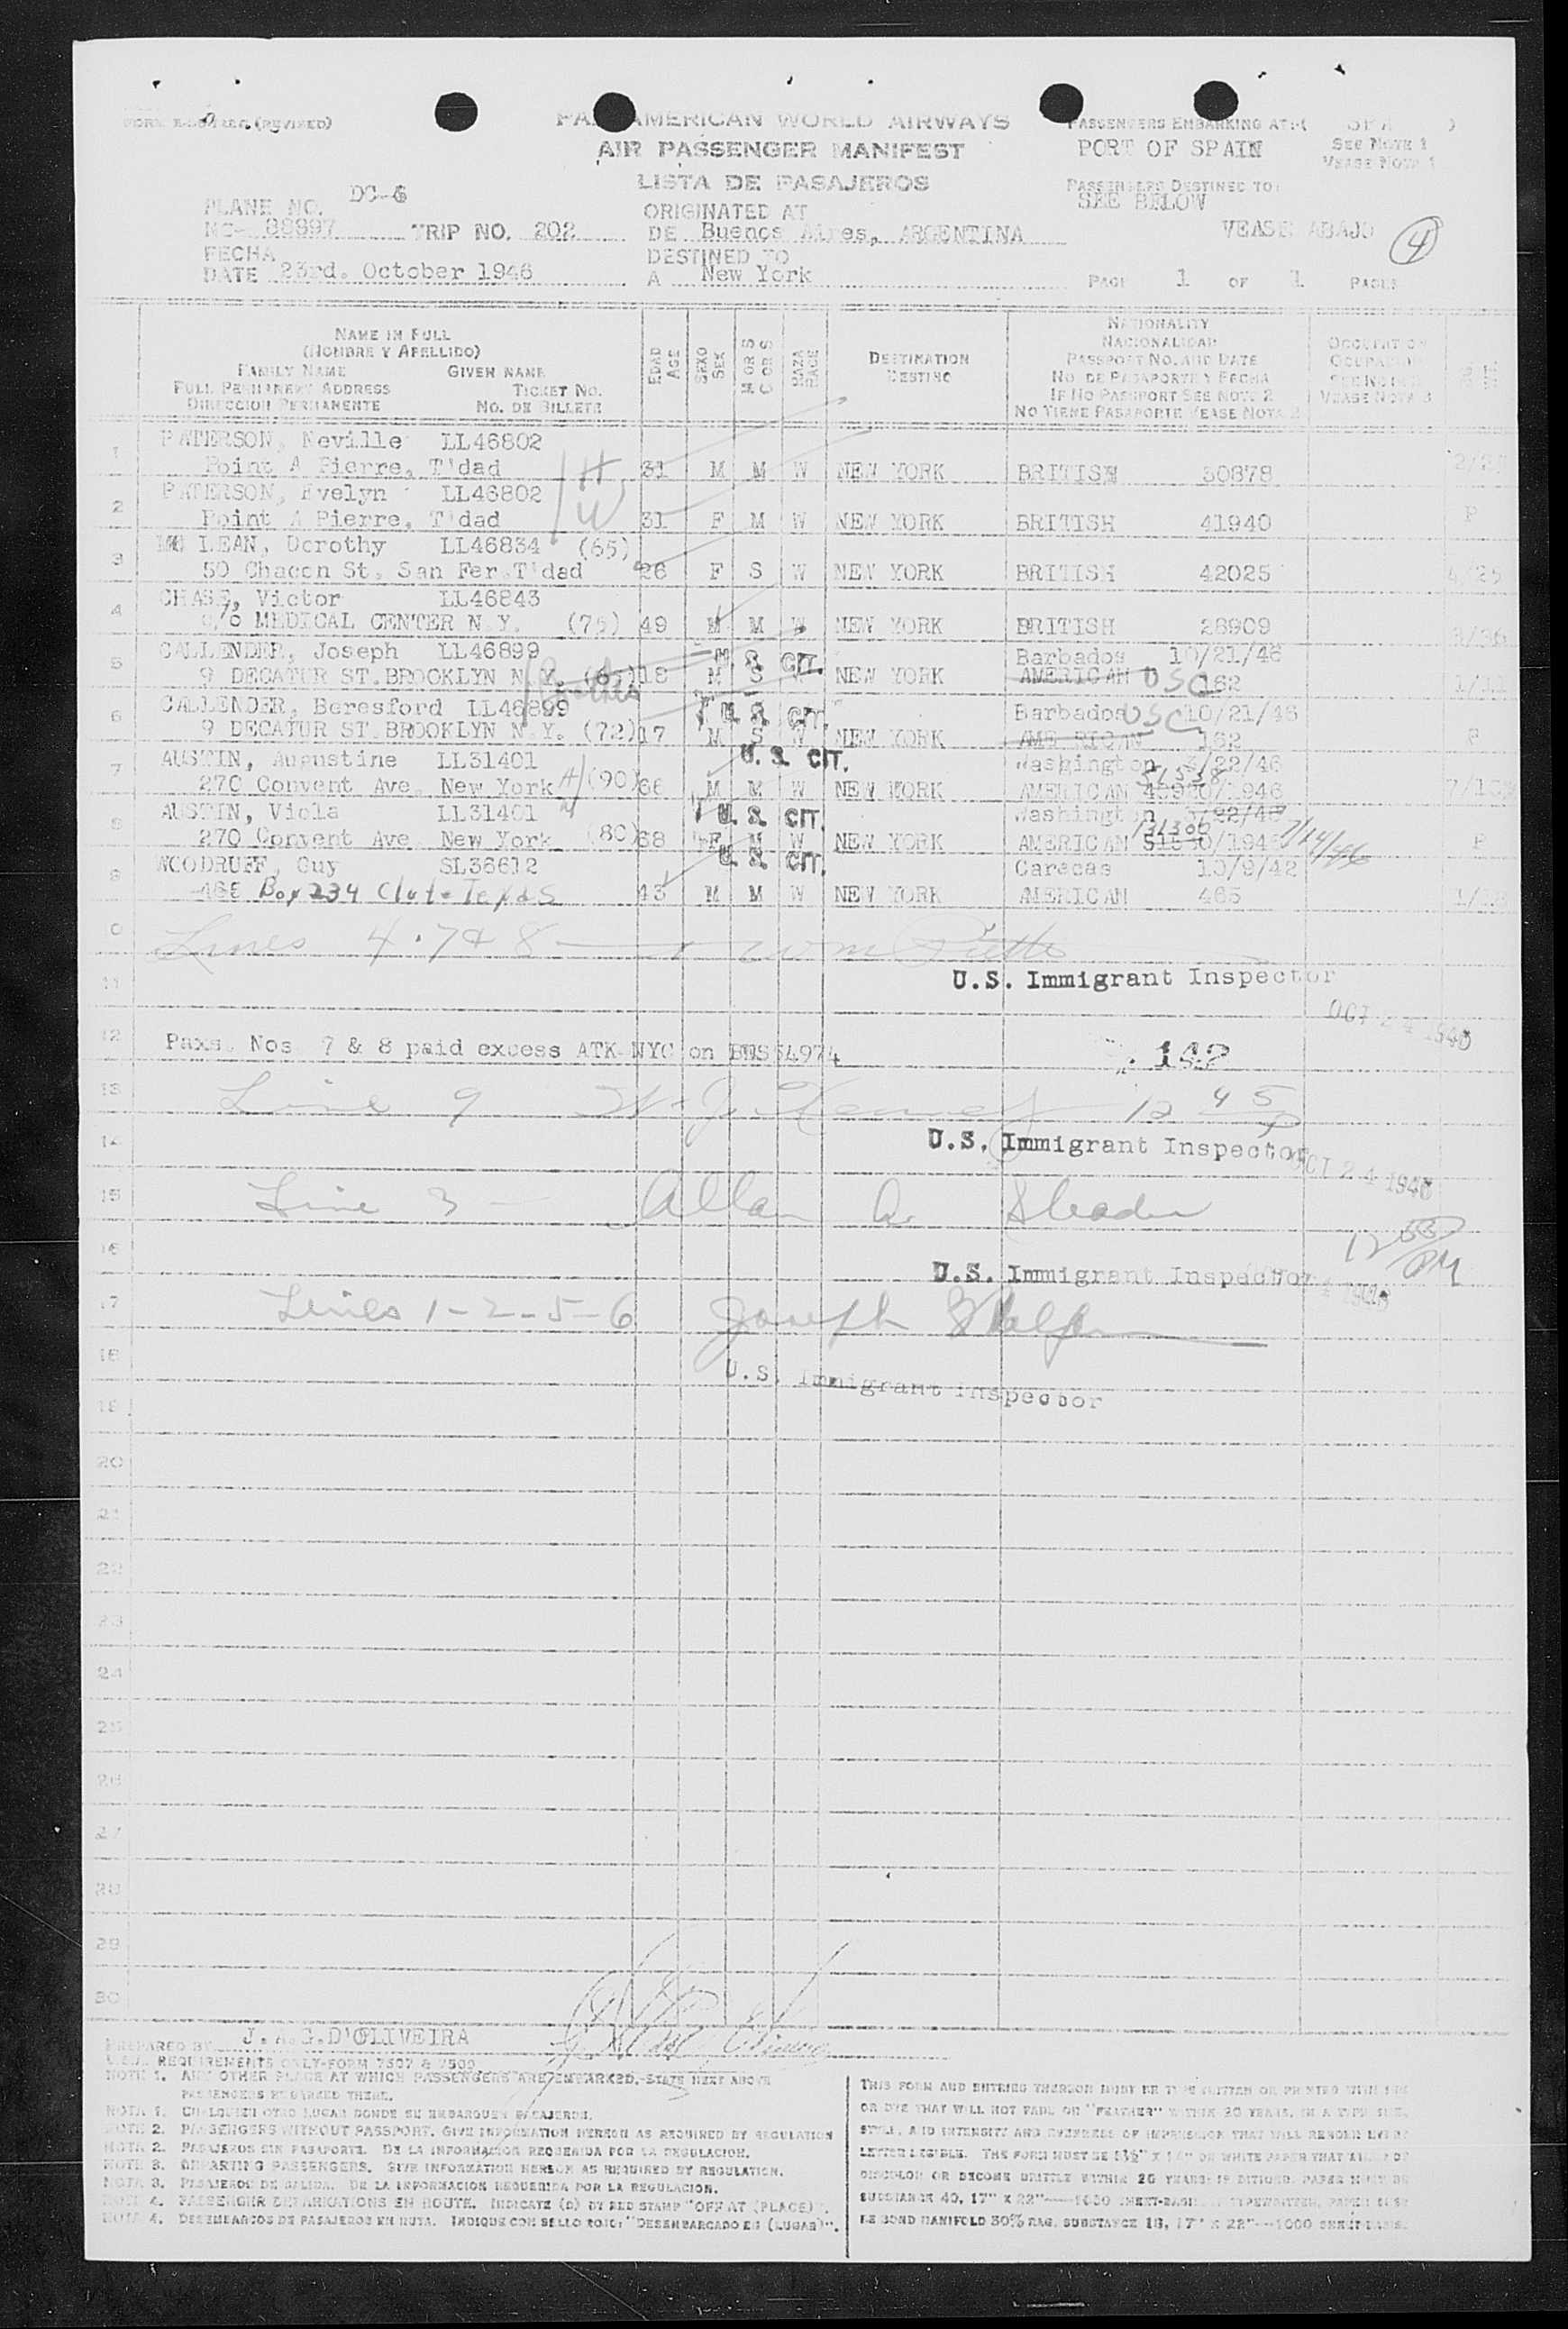 (REVISED)
PAN AMERICAN WORLD AIRWAYS
AIR PASSENGER MANIFEST
LISTA DE PASAJEROS
PASSENGERS EMBARKING AT:( )
PORT OF SPAIN
SEE NOTE 1
VEASE NOTA 1
PASSENGERS DESTINED TO:
SEE BELOW
VEASE ABAJO
4
DC-
PLANE NO.
NC- 88997 TRIP NO. 202
FECHA
DATE 23rd. October 1946
ORIGINATED AT
DE Buenos Aires, ARGENTINA
DESTINED TO
A New York
PAGE 1 OF 1 PAGES
NAME IN FULL
(NOMBRE Y APELLIDO)
FAMILY NAME GIVEN NAME
FULL PERMANENT ADDRESS TICKET NO.
DIRECCION PERMANENTE NO. DE BILLETE
EDAD AGE
SEXO SEX
M OR S C OR S
RAZA RACE
DESTINATION
DESTINO
NATIONALITY
NACIONALIDAD
PASSPORT NO. AND DATE
NO. DE PASAPORTE Y FECHA
IF NO PASSPORT SEE NOTE 2
NO TIENE PASAPORTE VEASE NOTA 2
OCCUPATION
OCUPACION
SEE NOTE 3
VEASE NOTA 3
1 PATERSON, Neville LL46802
Point A Pierre, T'dad 31 M M W NEW YORK BRITISH 30878
H
W
2 PATERSON, Evelyn LL46802
Point A Pierre, T'dad 31 F M W NEW YORK BRITISH 41940
3 MC LEAN, Dorothy LL46834 (65)
50 Chacon St. San Fer.T'dad 26 F S W NEW YORK BRITISH 42025
4 CHASE, Victor LL46843
c/o MEDICAL CENTER N.Y. (75) 49 M M W NEW YORK BRITISH 28909
5 CALLENDER, Joseph LL46899 U. S. CIT. Barbados 10/21/46
9 DECATUR ST.BROOKLYN N.Y. 18 M S W NEW YORK AMERICAN USC 162
6 CALLENDER, Beresford LL46899 U. S. CIT. Barbados USC 10/21/46
9 DECATUR ST.BROOKLYN N.Y. (72) 17 M S W NEW YORK AMERICAN 162
7 AUSTIN, Augustine LL31401 U. S. CIT. Washington /22/46
270 Convent Ave. New York (90) 66 M M W NEW YORK AMERICAN /1946
8 AUSTIN, Viola LL31401 U. S. CIT. Washington
270 Convent Ave. New York (80) 68 F M W NEW YORK AMERICAN
9 WOODRUFF, Guy SL36612 U. S. CIT. Caracas 10/9/42
Box 234 Clute Texas 43 M M W NEW YORK AMERICAN 465
Lines 4 . 7 & 8
11 U.S. Immigrant Inspector
OCT 24 1946
12 Paxs. Nos 7 & 8 paid excess ATK-NYC on
142
13 Line 9 12 45 P
14 U.S. Immigrant Inspector
OCT 24 1946
15 Line 3 - Allan
16 U.S. Immigrant Inspector
12 55 PM
17 Lines 1-2-5-6 Joseph
18 U.S. Immigrant Inspector
19
20
21
22
23
24
25
26
27
28
29
30
PREPARED BY J.A.G.D'OLIVEIRA
REQUIREMENTS ONLY-FORM 7507 & 7509
NOTE 1. ANY OTHER PLACE AT WHICH PASSENGERS ARE EMBARKED, STATE NEXT ABOVE
PASSENGERS EMBARKED THERE.
NOTA 1. CUALQUIER OTRO LUGAR DONDE SE EMBARQUEN PASAJEROS.
NOTE 2. PASSENGERS WITHOUT PASSPORT. GIVE INFORMATION HEREON AS REQUIRED BY REGULATION
NOTA 2. PASAJEROS SIN PASAPORTE. DE LA INFORMACION REQUERIDA POR LA REGULACION.
NOTE 3. DEPARTING PASSENGERS. GIVE INFORMATION HEREON AS REQUIRED BY REGULATION.
NOTA 3. PASAJEROS DE SALIDA. DE LA INFORMACION REQUERIDA POR LA REGULACION.
NOTE 4. PASSENGER DEPARKATIONS EN ROUTE. INDICATE (D) BY RED STAMP "OFF AT (PLACE)".
NOTA 4. DESEMBARCOS DE PASAJEROS EN RUTA. INDIQUE CON SELLO ROJO: "DESEMBARCADO EN (LUGAR)".
THIS FORM AND ENTRIES THEREON MUST BE TYPEWRITTEN OR PRINTED WITH INK
OR DYE THAT WILL NOT FADE OR "FEATHER" WITHIN 20 YEARS, IN A TYPE SIZE,
STYLE, AND INTENSITY AND EVENNESS OF IMPRESSION THAT WILL RENDER EVERY
LETTER LEGIBLE. THE FORM MUST BE 8½" X 14" ON WHITE PAPER THAT WILL NOT
DISCOLOR OR BECOME BRITTLE WITHIN 20 YEARS. PAPER MUST BE
SUBSTANCE 40, 17" X 22"
BE BOND MANIFOLD 30% RAG, SUBSTANCE 18, 17" X 22"—1000 SHEET-BASIS.